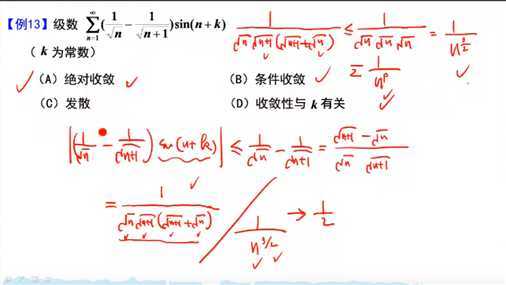 【例13】级数 $\sum_{n=1}^{\infty}(\frac{1}{\sqrt{n}}-\frac{1}{\sqrt{n+1}})\sin(n+k)$
（k 为常数）
(A) 绝对收敛 ✓ (B) 条件收敛 ✓
(C) 发散 (D) 收敛性与 k 有关
$\frac{1}{\sqrt{n}\sqrt{n+1}(\sqrt{n+1}+\sqrt{n})} \le \frac{1}{\sqrt{n}\sqrt{n}\sqrt{n}} = \frac{1}{n^{\frac{3}{2}}}$
$\sum \frac{1}{n^p}$ ✓ ✓
$\left|\left(\frac{1}{\sqrt{n}}-\frac{1}{\sqrt{n+1}}\right)\sin(n+k)\right| \le \frac{1}{\sqrt{n}}-\frac{1}{\sqrt{n+1}} = \frac{\sqrt{n+1}-\sqrt{n}}{\sqrt{n}\sqrt{n+1}}$
$= \frac{1}{\sqrt{n}\sqrt{n+1}(\sqrt{n+1}+\sqrt{n})} \Big/ \frac{1}{n^{3/2}} \to \frac{1}{2}$